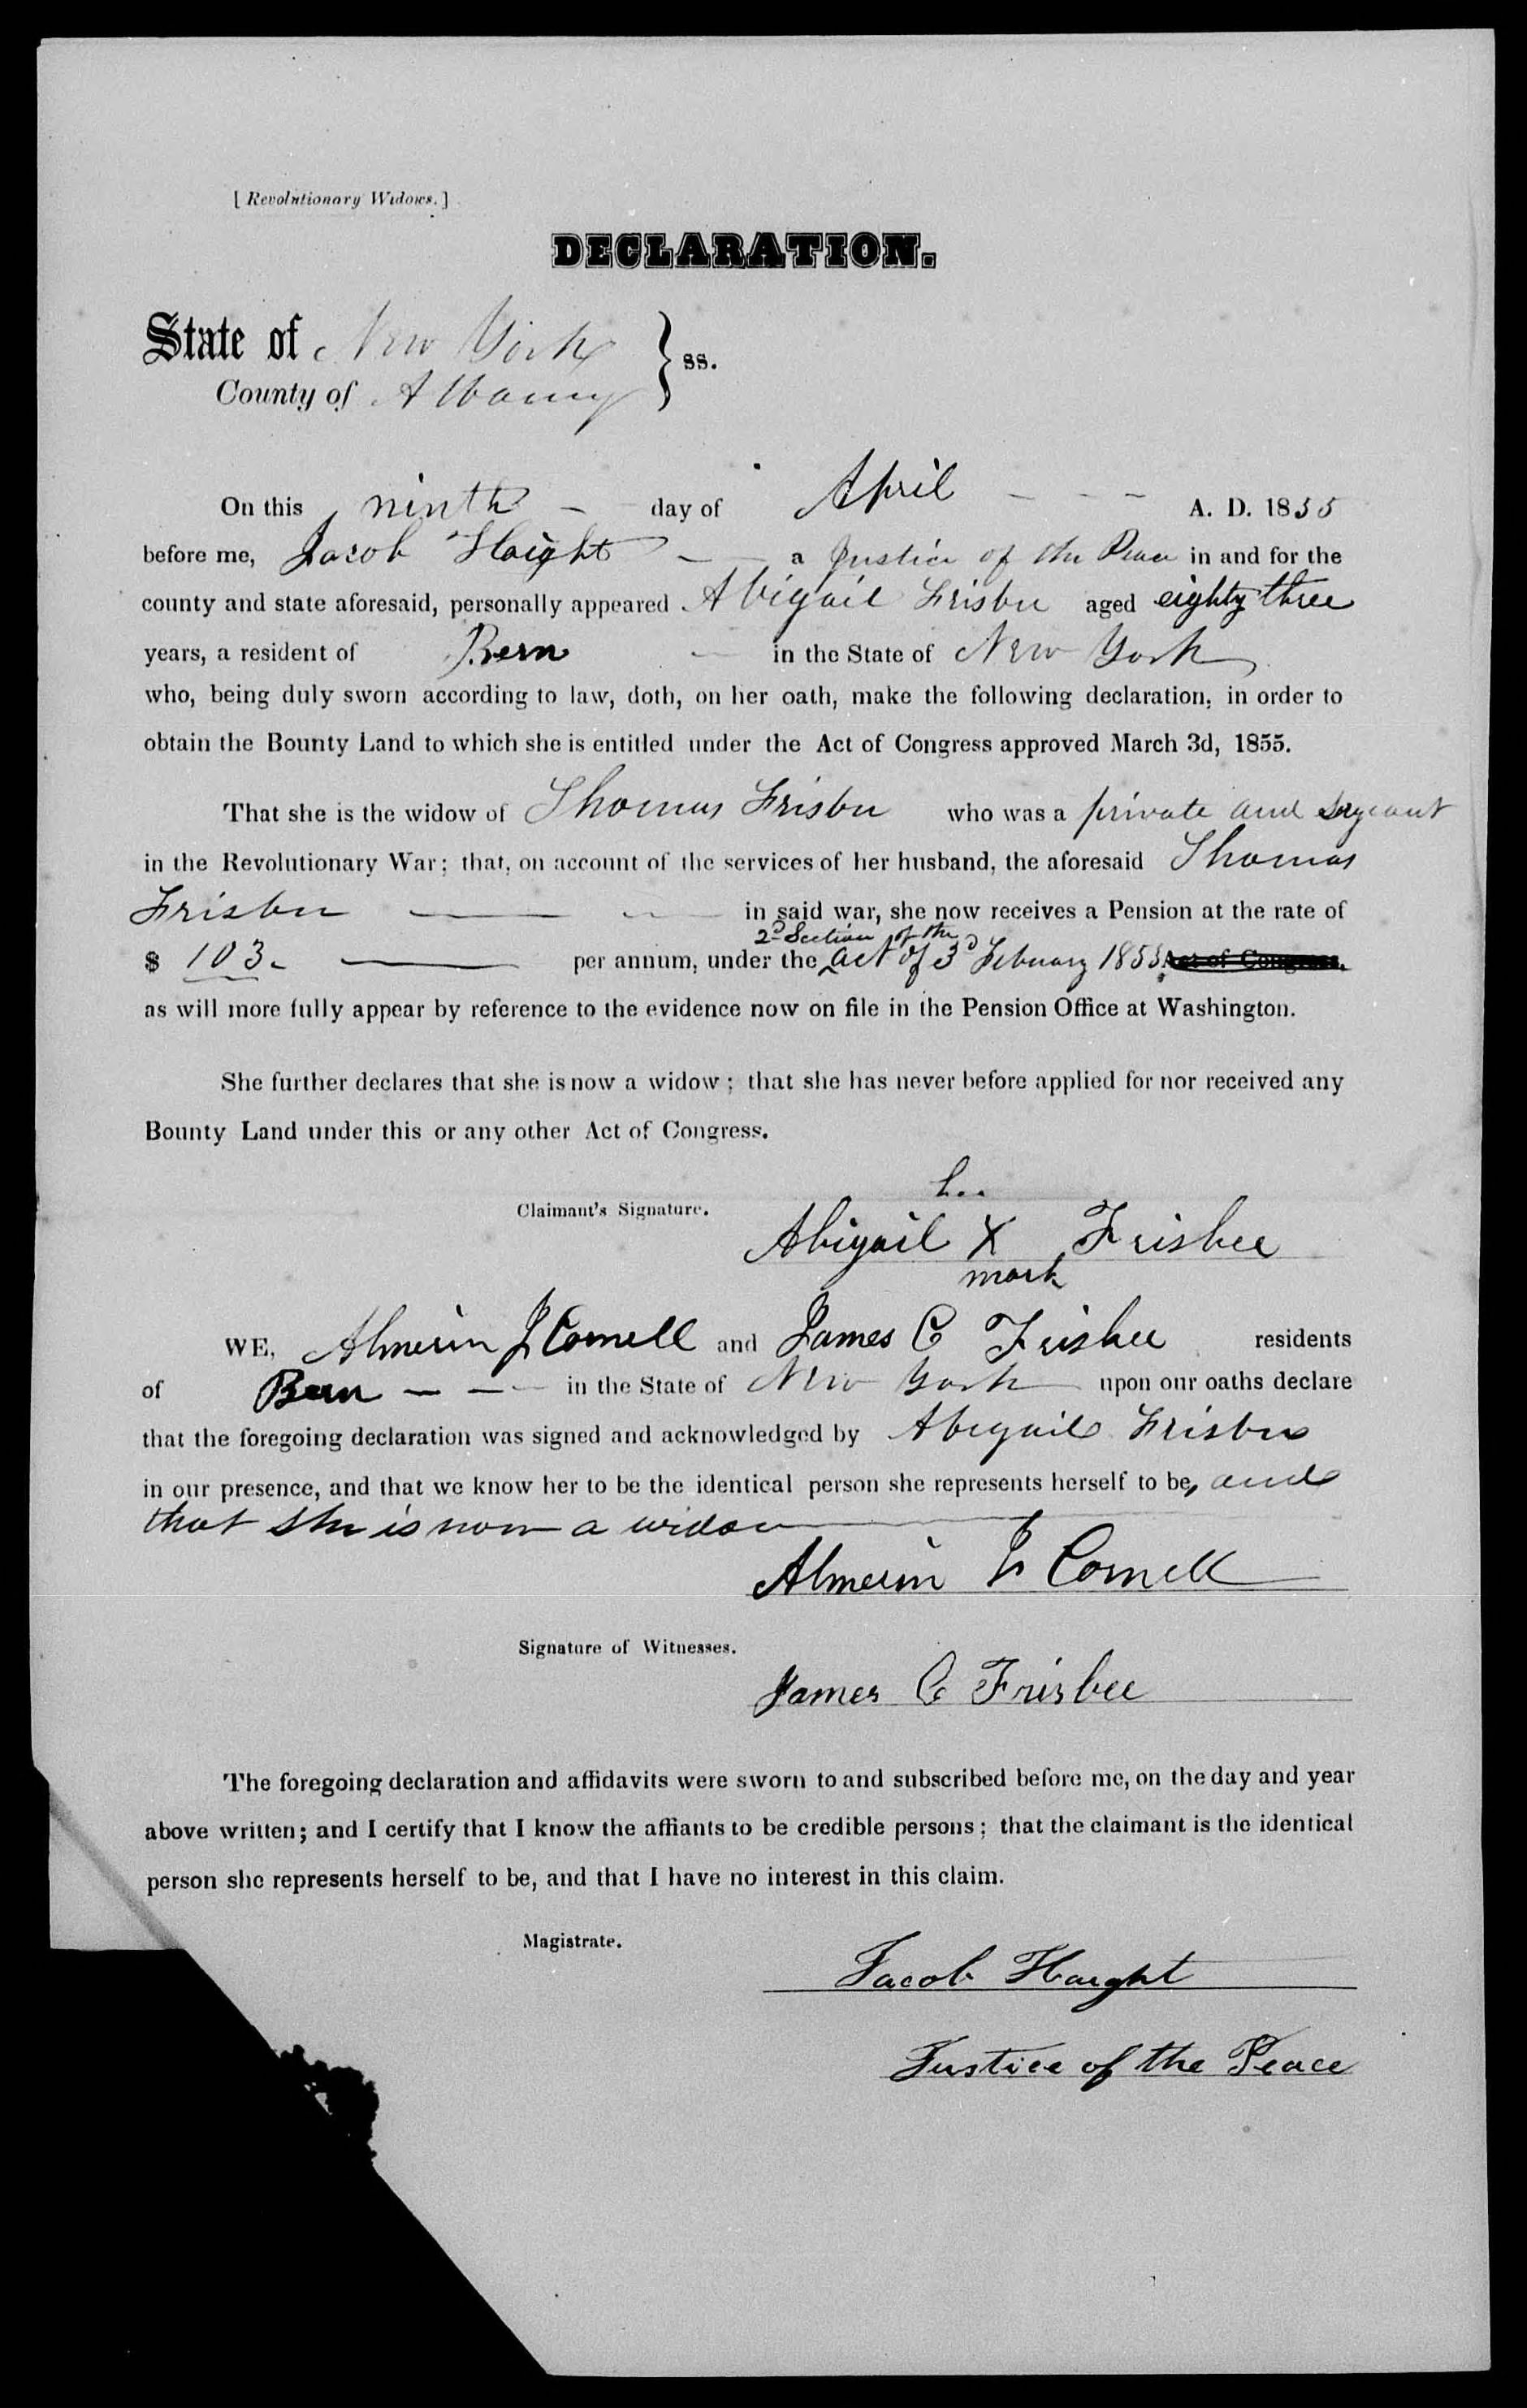 [ Revolutionary Widows. ]
DECLARATION.
State of New York } ss.
County of Albany
On this ninth - day of April - - - A. D. 1855
before me, Jacob Haight - a Justice of the Peace in and for the
county and state aforesaid, personally appeared Abigail Frisbee aged eighty three
years, a resident of Bern - in the State of New York
who, being duly sworn according to law, doth, on her oath, make the following declaration, in order to
obtain the Bounty Land to which she is entitled under the Act of Congress approved March 3d, 1855.
That she is the widow of Thomas Frisbee who was a private and sergeant
in the Revolutionary War; that, on account of the services of her husband, the aforesaid Thomas
Frisbee in said war, she now receives a Pension at the rate of
2d Section of the
$ 103. per annum, under the act of 3d February 1853 Act of Congress,
as will more fully appear by reference to the evidence now on file in the Pension Office at Washington.
She further declares that she is now a widow; that she has never before applied for nor received any
Bounty Land under this or any other Act of Congress.
her
Claimant's Signature. Abigail X Frisbee
mark
WE, Almerin J Cornell and James C Frisbee residents
of Bern - - - in the State of New York upon our oaths declare
that the foregoing declaration was signed and acknowledged by Abigail Frisbee
in our presence, and that we know her to be the identical person she represents herself to be, and
that she is now a widow
Almerin J Cornell
Signature of Witnesses.
James C Frisbee
The foregoing declaration and affidavits were sworn to and subscribed before me, on the day and year
above written; and I certify that I know the affiants to be credible persons; that the claimant is the identical
person she represents herself to be, and that I have no interest in this claim.
Magistrate.
Jacob Haight
Justice of the Peace